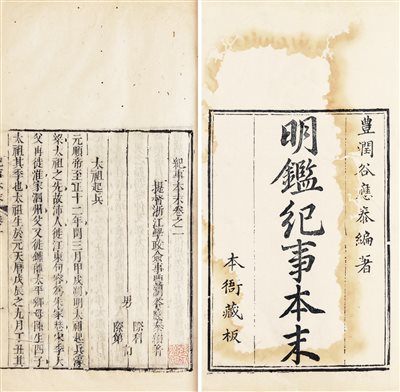 豐潤谷應泰編著
明鑑紀事本末
本衙藏板
紀事本末卷之一
提督浙江學政僉事豐潤谷應泰編著
男
際科
際第
太祖起兵
元順帝至正十二年閏三月甲戌朔明太祖起兵濠
梁太祖之先故沛人徙江東句容為朱家巷宋季大
父再徙淮家泗州父又徙鍾離太平鄉母陳生四子
太祖其季也太祖生於元天曆戊辰之九月丁丑其